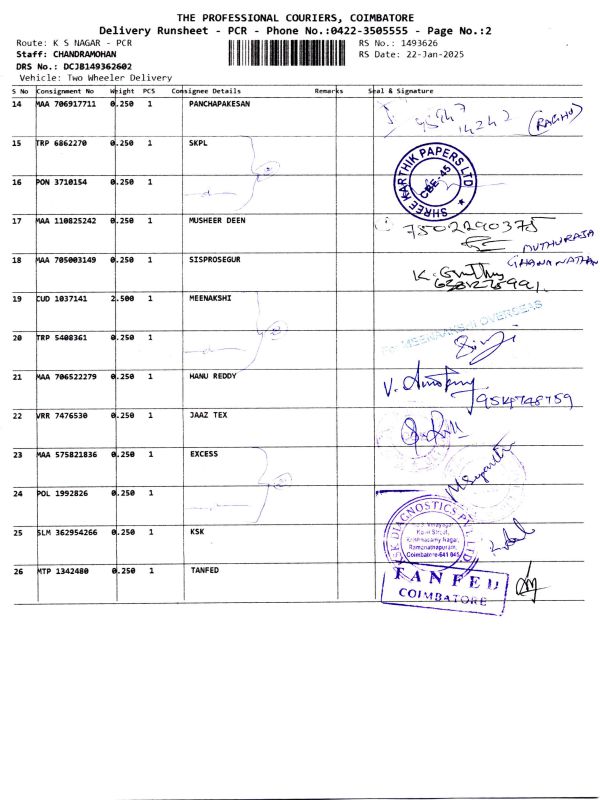 THE PROFESSIONAL COURIERS, COIMBATORE
Delivery Runsheet - PCR - Phone No.:0422-3505555 - Page No.:2
Route: K S NAGAR - PCR
RS No.: 1493626
Staff: CHANDRAMOHAN
RS Date: 22-Jan-2025
DRS No.: DCJB149362602
Vehicle: Two Wheeler Delivery
S No Consignment No Weight PCS Consignee Details Remarks Seal & Signature
14 MAA 706917711 0.250 1 PANCHAPAKESAN
(RAGHU)
15 TRP 6862270 0.250 1 SKPL
SHREE KARTHIK PAPERS LTD
CBE-45
16 PON 3710154 0.250 1
17 MAA 110825242 0.250 1 MUSHEER DEEN
7502290375
MUTHURAJA
18 MAA 705003149 0.250 1 SISPROSEGUR
GHANANATHAN
19 CUD 1037141 2.500 1 MEENAKSHI
For MEENAAKSHI OVERSEAS
20 TRP 5408361 0.250 1
21 MAA 706522279 0.250 1 HANU REDDY
9514748759
22 VRR 7476530 0.250 1 JAAZ TEX
23 MAA 575821836 0.250 1 EXCESS
24 POL 1992826 0.250 1
25 SLM 362954266 0.250 1 KSK
KSK DIAGNOSTICS PVT LTD
Krishnasamy Nagar,
Ramanathapuram,
Coimbatore-641 045
26 MTP 1342480 0.250 1 TANFED
TANFED
COIMBATORE